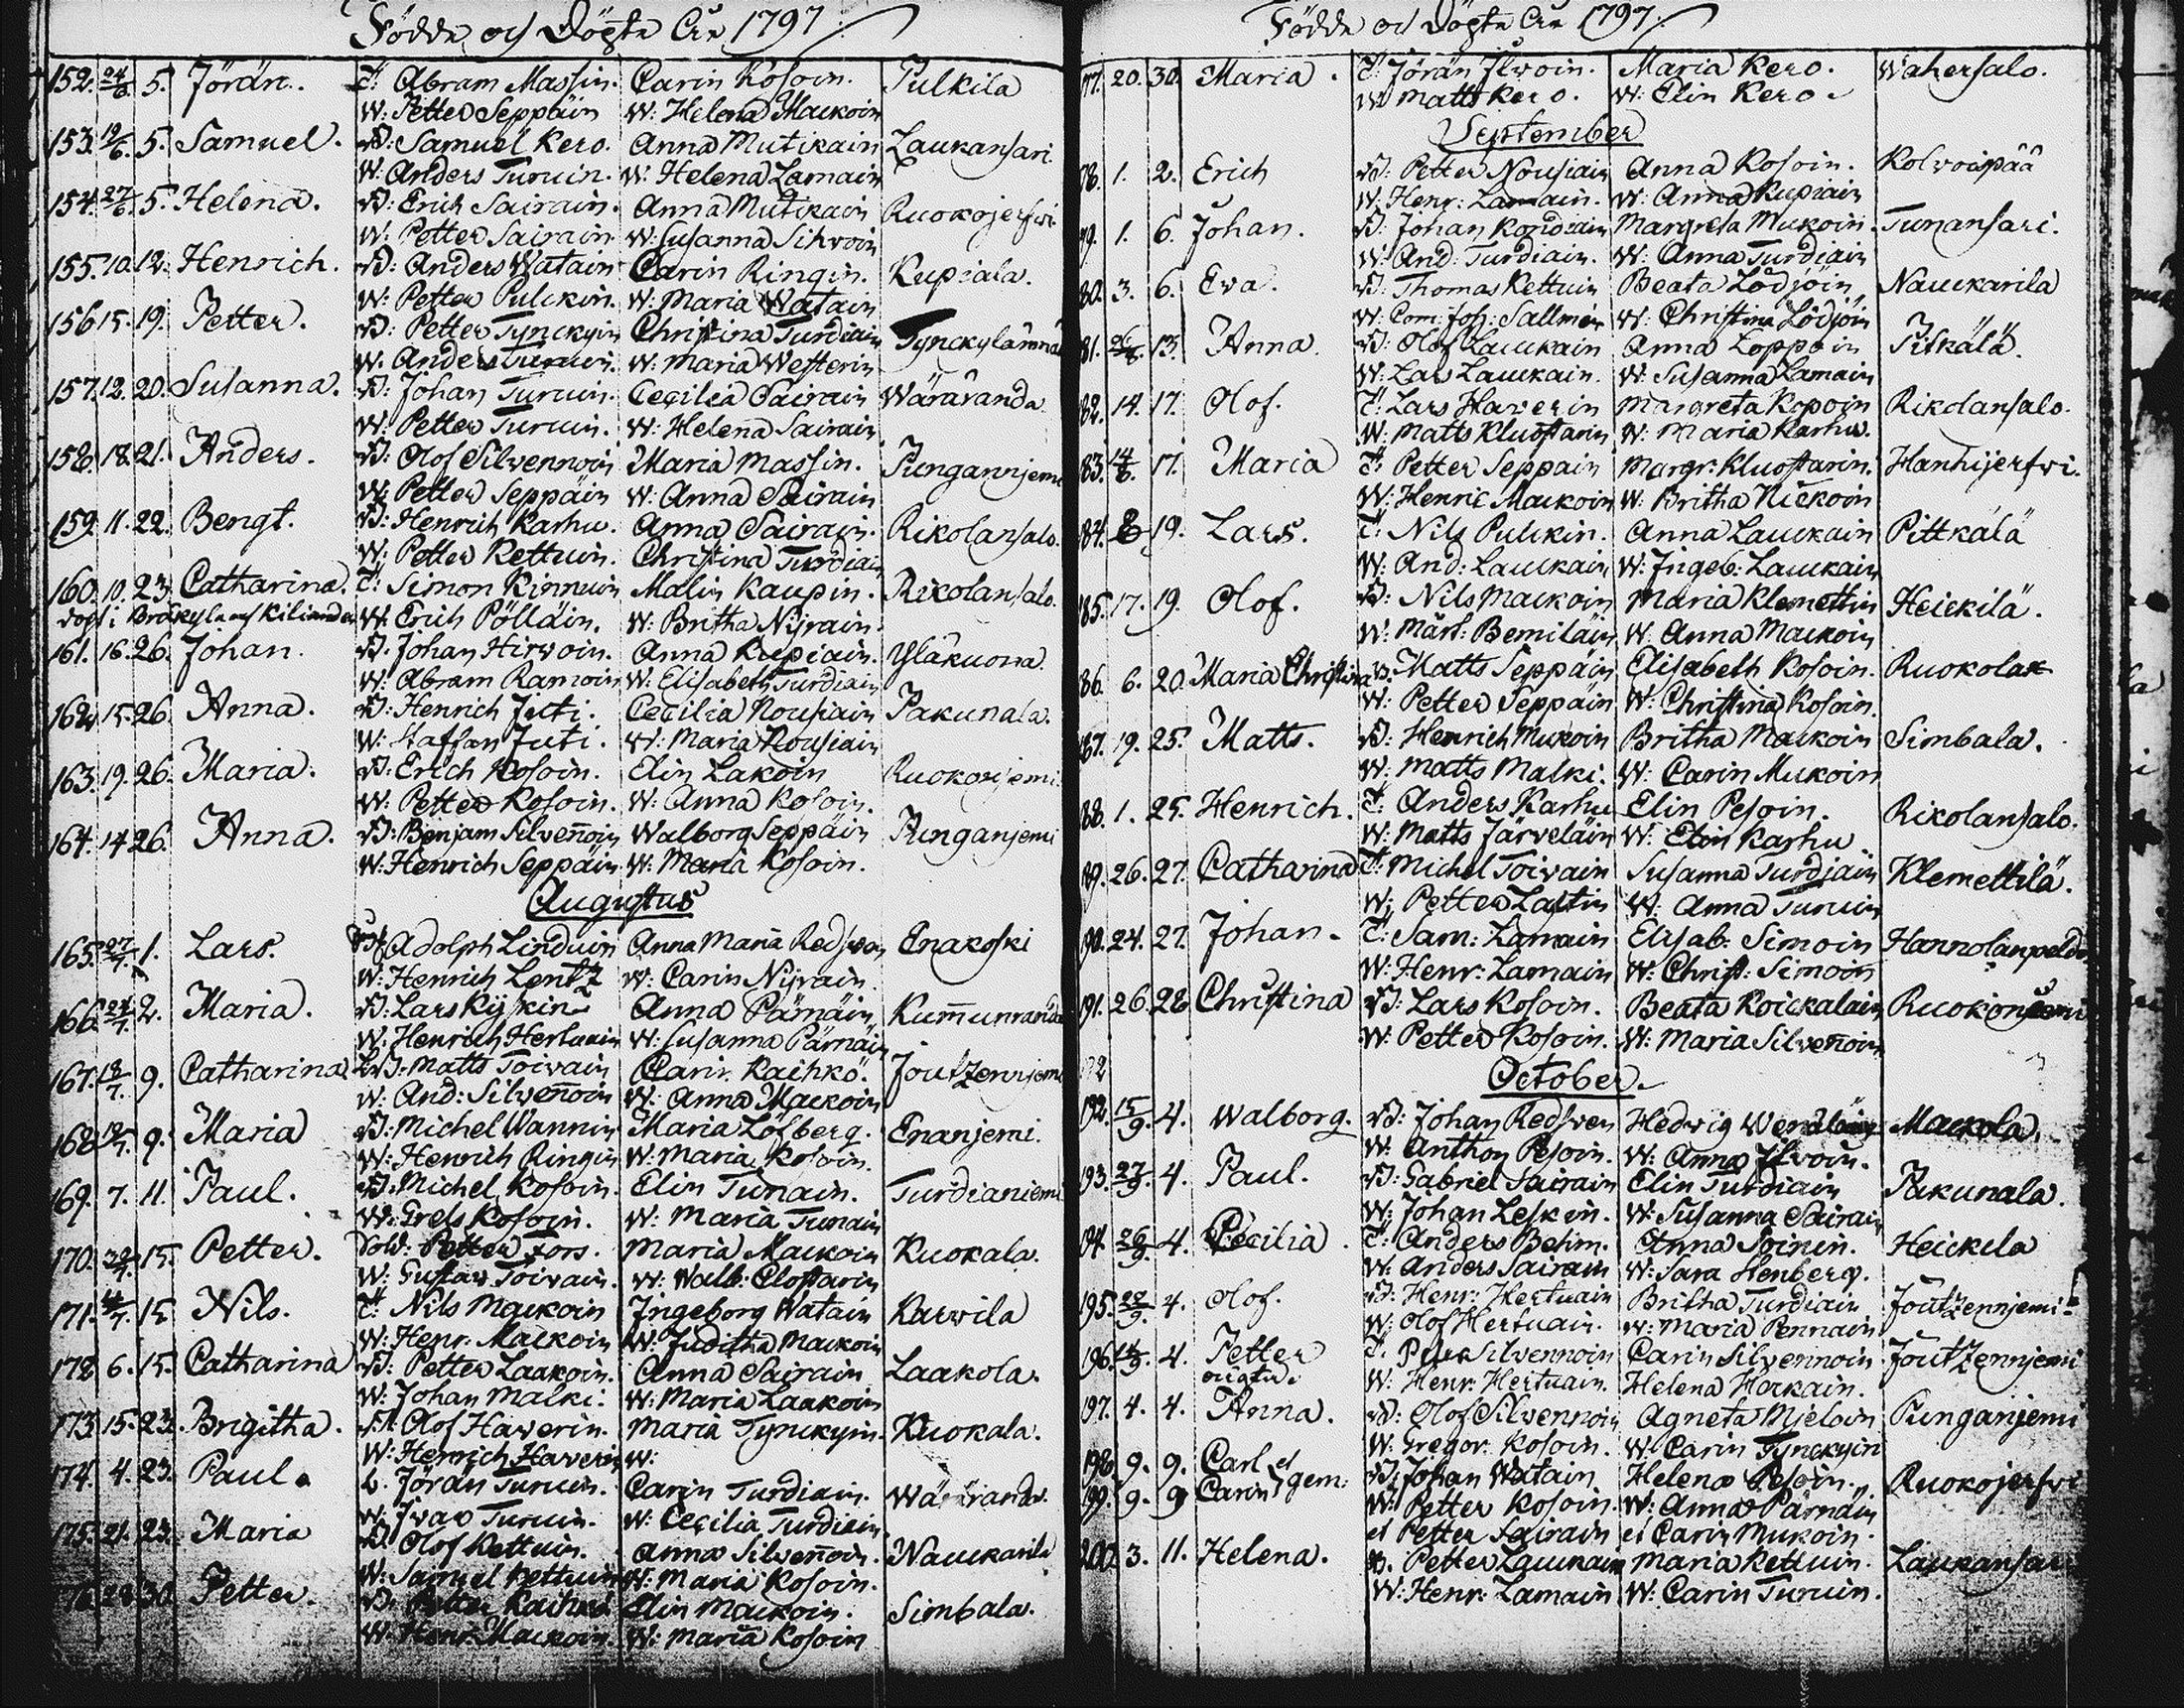 Födde och Döpte År 1797
152. 24/6 5. Jöran. T: Abram Massin. Carin Kosoin. Pulkila
W: Petter Seppäin W: Helena Mackoin
153. 19/6 5. Samuel. B: Samuel Kero. Anna Mutikain Laukansari
W: Anders Turuin. W: Helena Lamain
154. 27/6 5. Helena. B: Erich Sairain. Anna Mutikain Ruokojerfwi
W: Petter Sairain. W: Susanna Sihwoin
155. 10. 12. Henrich. B: Anders Watain Carin Ringin. Kupiala.
W: Petter Pulckin. W: Maria Watain
156 15. 19. Petter. B: Petter Tynckyin Christina Turdiain Tynckylämnä
W: Anders Turuin. W: Maria Westerin
157. 12. 20. Susanna. B: Johan Turuin. Cecilia Sairain Wäräranda
W: Petter Turuin. W: Helena Sairain
158. 18. 21. Anders. B: Olof Silvennoin Maria Massin. Pungannjemi
W: Petter Seppäin W: Anna Sairain
159. 11. 22. Bengt. B: Henrich Karhu. Anna Sairain. Rikolansalo.
W: Petter Kettuin. Christina Turdiain
160. 10. 23. Catharina. T: Simon Kinnuin Malin Kaupin. Rikolansalo.
W: Erich Pölläin. W: Britha Nyrain.
161. 16. 26. Johan. B. Johan Hirwoin. Anna Kupiain. Yläkuona.
W: Abram Ramoin W: Elisabeth Turdiain
162 15. 26. Anna. B: Henrich Juti. Cecilia Nousiain Pakunala.
W: Staffan Juti. W: Maria Nousiain
163. 19. 26. Maria. B: Erich Kosoin. Elin Lakoin Ruokonjemi
W: Petter Kosoin. W: Anna Kosoin.
164. 14 26. Anna. B: Benjam Silvenoin Walborg Seppäin Punganjemi
W: Henrich Seppäin W: Maria Kosoin.
Augustus
165. 27/7. 1. Lars. Adolph Linduin Anna Maria Redsven Enakoski
W: Henrich Lentz W: Carin Nyrain.
166. 24/7. 2. Maria. B: Lars Kyskin Anna Pärnäin Kumunranda
W: Henrich Hertuain W: Susanna Pärnäin
167. 18/7. 9. Catharina. Matts Toivain Carin Kaihkö. Joutzennjemi
W: And: Silvenoin W: Anna Mackoin
168 19/7. 9. Maria B: Michel Wannin Maria Löfberg. Enanjemi.
W: Henrich Ringin W: Maria Kosoin.
169. 7. 11. Paul. B: Michel Kosoin. Elin Tunain. Turdianiemi
W: Grels Kosoin. W: Maria Tunain
170. 15. Petter. Sold: Petter Fors. Maria Mackoin Kuokala.
W: Gustav Toivain. W: Walb: Clostarin
171. 15. Nils. T: Nils Mackoin Ingeborg Watain Karwila
W: Henr. Mackoin W: Juditha Mackoin
172 6. 15. Catharina B: Petter Laakoin. Anna Sairain Laakola.
W: Johan Malki. W: Maria Laakoin
173. 15. 23. Brigitha. Olof Haverin. Maria Tynckyin. Kuokala.
W: Henrich Haverin W:
174. 4. 23. Paul. Jöran Turuin. Carin Turdiain. Wäräranda.
W: Ivar Turuin. W: Cecilia Turdiain.
175. 21. 23. Maria B: Olof Kettuin. Anna Silvenoin. Nauckarila
W: Samuel Kettuin W: Maria Kosoin.
176. 28 30. Petter. B. Petter Kaihkö Elin Mackoin. Simbala.
W: Henr. Mackoin. W: Maria Kosoin
Födde och Döpte År 1797.
177. 20. 30. Maria. T: Jöran Ilwoin. Maria Kero. Wahersalo.
W Matts Kero. W: Elin Kero.
September
78. 1. 2. Erich B: Petter Nousiain Anna Kosoin. Kolvoipää
W: Henr: Lamain. W: Anna Kupiain
79. 1. 6. Johan. B: Johan Kondiain Margreta Mukoin. Tunansari.
W: And: Turdiain. W: Anna Turdiain
80. 3. 6. Eva. B: Thomas Kettuin Beata Lödjöin Nauckarila
W: Com: Joh: Sallmén W: Christina Lödjöin
81. 26/8. 13. Anna. B: Olof Lauckain Anna Loppoin Pitkälä.
W: Lars Lauckain. W: Susanna Lamain
82. 14. 17. Olof. T: Lars Haverin Margreta Kopoin Rikolansalo.
W: Matts Kluostarin W: Maria Karhu.
83. 14/8. 17. Maria T: Petter Seppain Margr: Kluostarin. Hanhijerfvi.
W: Henric Mackoin W: Britha Nickoin
84. 8 19. Lars. T: Nils Pulckin. Anna Lauckain Pittkälä
W: And: Lauckain W: Ingeb: Lauckain
185. 17. 19. Olof. B: Nils Mackoin Maria Klemettin Heickilä.
W: Mårt: Bemiläin W: Anna Mackoin
86. 6. 20. Maria Christina B. Matts Seppäin Elisabeth Kosoin. Ruokola
W: Petter Seppäin W: Christina Kosoin.
187. 19. 25. Matts. B: Henrich Mukoin Britha Mackoin Simbala.
W: Matts Malki. W: Carin Mukoin
88. 1. 25. Henrich. T: Anders Karhu Elin Pesoin. Rikolansalo.
W: Matts Järveläin W: Elin Karhu
89. 26. 27. Catharina T: Michel Toivain Susanna Turdiain Klemettilä.
W: Petter Lastin W: Anna Turuin
190. 24. 27. Johan. T: Sam: Lamain Elisab: Simoin Hannolanpeldo
W: Henr: Lamain W: Christ: Simoin
191. 26. 28 Christina B: Lars Kosoin. Beata Koickalain Ruokonjemi
W: Petter Kosoin. W: Maria Silvenoin
October.
192. 15/9. 4. Walborg. B: Johan Redsven Hedvig Mackola.
W: Anthon Pesoin. W: Anna Ilvoin.
193. 27/9. 4. Paul. B: Gabriel Sairain Elin Turdiain Pakunala.
W: Johan Leskin. W: Susanna Sairain
194. 26/9. 4. Cecilia. T: Anders Behm. Anna Soinin. Heickela
W: Anders Sairain W: Sara Henberg.
195. 28/9. 4. Olof. B: Henr: Hertuain Britha Turdiain Joutzennjemi
W: Olof Hertuain. W: Maria Pennain
196. 14/9. 4. Petter T. Silvennoin Carin Silvennoin Joutzennjemi
oägta. W: Henr. Hertuain. Helena Harkain.
197. 4. 4. Anna. B: Olof Silvennoin Agneta Mjeloin Punganjemi
W. Gregor. Kosoin. W: Carin Tynckyin
198 9. 9. Carl et B: Johan Watain Helena Pesoin. Ruokojerfvi
199. 9. 9 Carin gem: W: Petter Kosoin. W: Anna Pärnäin
et Petter Sairain et Carin Mukoin.
200. 3. 11. Helena. B. Petter Lauckain Maria Kettuin. Laukansari
W: Henr: Lamain W: Carin Turuin.